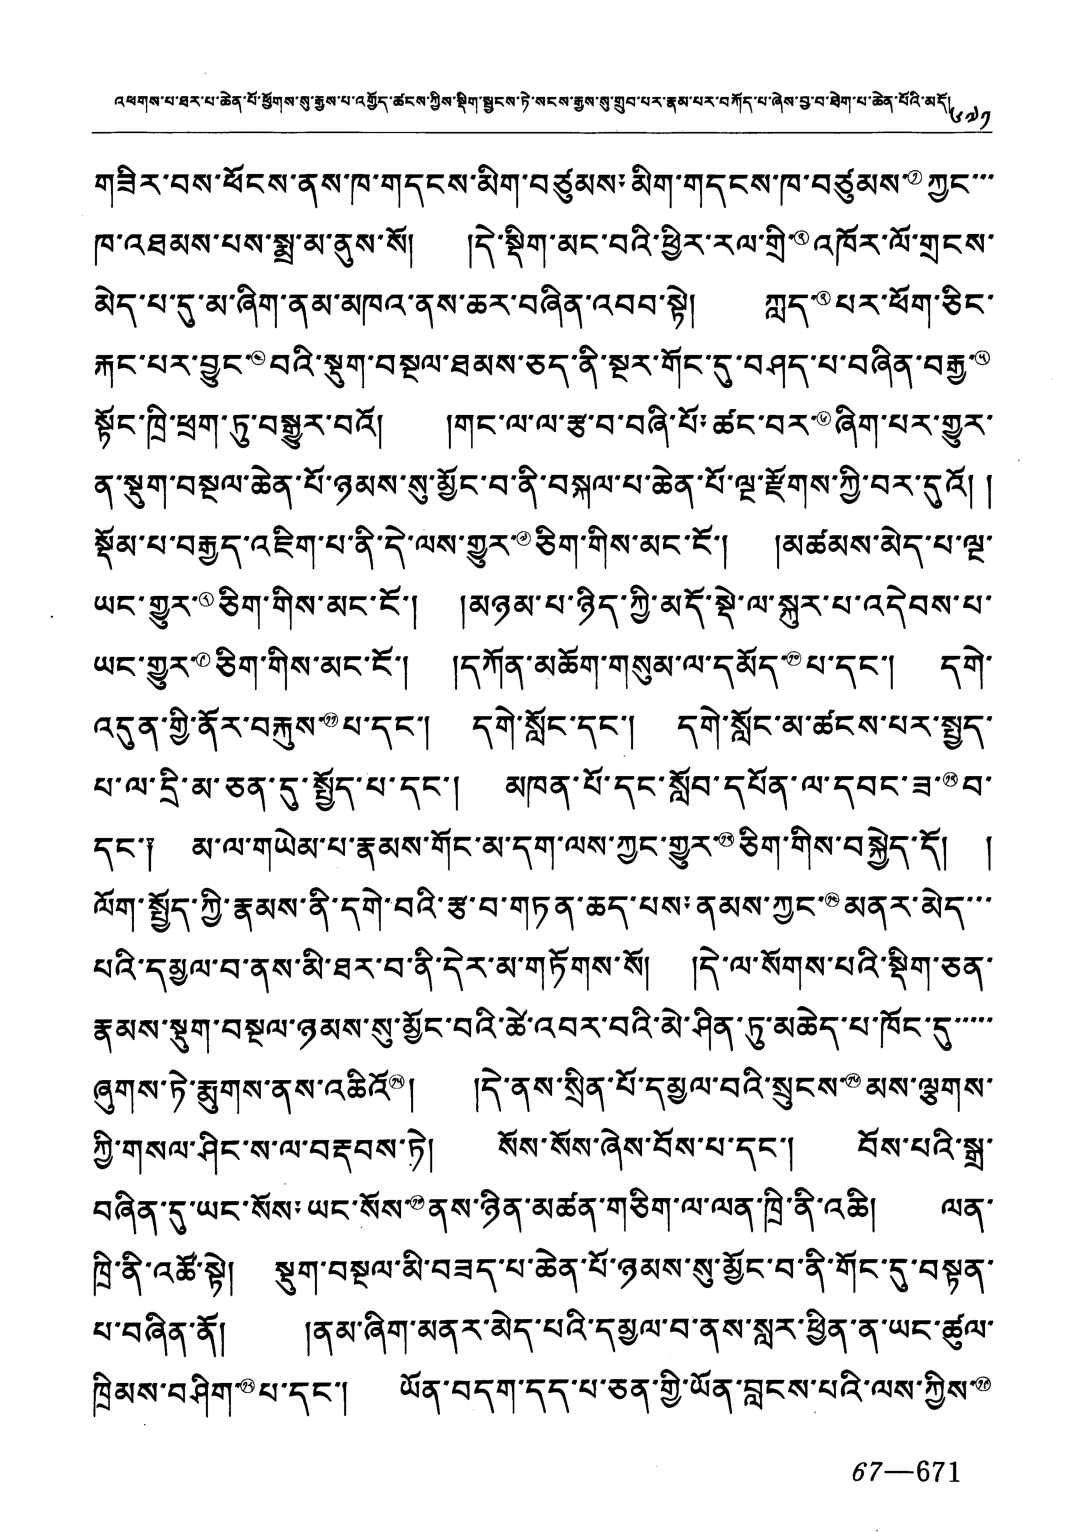 འཕགས་པ་ཐར་པ་ཆེན་པོ་ཕྱོགས་སུ་རྒྱས་པ་འགྱོད་ཚངས་ཀྱིས་སྡིག་སྦྱངས་ཏེ་སངས་རྒྱས་སུ་གྲུབ་པར་རྣམ་པར་བཀོད་པ་ཞེས་བྱ་བ་ཐེག་པ་ཆེན་པོའི་མདོ། ༦༧༡
གཟིར་བས་ཕོངས་ནས་ཁ་གདངས་མིག་བཙུམས་མིག་གདངས་ཁ་བཙུམས་①ཀྱང་
ཁ་འཐམས་པས་སྨྲ་མ་ནུས་སོ། །དེ་སྡིག་མང་བའི་ཕྱིར་རལ་གྲི་②འཁོར་ལོ་གྲངས་
མེད་པ་དུ་མ་ཞིག་ནམ་མཁའ་ནས་ཆར་བཞིན་འབབ་སྟེ། ཀླད་③པར་ཕོག་ཅིང་
རྐང་པར་བྱུང་④བའི་སྡུག་བསྔལ་ཐམས་ཅད་ནི་སྔར་གོང་དུ་བཤད་པ་བཞིན་བརྒྱ་⑤
སྟོང་ཁྲི་ཕྲག་ཏུ་བསྒྱུར་བའོ། །གང་ལ་ལ་རྩ་བ་བཞི་པོ་ཚང་བར་⑥ཞིག་པར་གྱུར་
ན་སྡུག་བསྔལ་ཆེན་པོ་ཉམས་སུ་མྱོང་བ་ནི་བསྐལ་པ་ཆེན་པོ་ལྔ་རྫོགས་ཀྱི་བར་དུའོ། །
སྡོམ་པ་བརྒྱད་འཇིག་པ་ནི་དེ་ལས་གྱུར་⑦ཅིག་གིས་མང་ངོ་། །མཚམས་མེད་པ་ལྔ་
ཡང་གྱུར་⑧ཅིག་གིས་མང་ངོ་། །མཉམ་པ་ཉིད་ཀྱི་མདོ་སྡེ་ལ་སྐུར་པ་འདེབས་པ་
ཡང་གྱུར་⑨ཅིག་གིས་མང་ངོ་། །དཀོན་མཆོག་གསུམ་ལ་དམོད་⑩པ་དང་། དགེ་
འདུན་གྱི་ནོར་བརྐུས་⑪པ་དང་། དགེ་སློང་དང་། དགེ་སློང་མ་ཚངས་པར་སྤྱད་
པ་ལ་དྲི་མ་ཅན་དུ་སྤྱོད་པ་དང་། མཁན་པོ་དང་སློབ་དཔོན་ལ་དབང་ཟ་⑫བ་
དང་། མ་ལ་གཡེམ་པ་རྣམས་གོང་མ་དག་ལས་ཀྱང་གྱུར་⑬ཅིག་གིས་བསྐྱེད་དོ། །
ལོག་སྤྱོད་ཀྱི་རྣམས་ནི་དགེ་བའི་རྩ་བ་གཏན་ཆད་པས་ནམས་ཀྱང་⑭མནར་མེད་
པའི་དམྱལ་བ་ནས་མི་ཐར་བ་ནི་དེར་མ་གཏོགས་སོ། །དེ་ལ་སོགས་པའི་སྡིག་ཅན་
རྣམས་སྡུག་བསྔལ་ཉམས་སུ་མྱོང་བའི་ཚེ་འབར་བའི་མེ་ཤིན་ཏུ་མཆེད་པ་ཁོང་དུ་
ཞུགས་ཏེ་རྨུགས་ནས་འཆིའོ⑮། །དེ་ནས་སྲིན་པོ་དམྱལ་བའི་སྲུངས་⑯མས་ལྕགས་
ཀྱི་གསལ་ཤིང་ས་ལ་བརྡབས་ཏེ། སོས་སོས་ཞེས་བོས་པ་དང་། བོས་པའི་སྒྲ་
བཞིན་དུ་ཡང་སོས་ཡང་སོས་⑰ནས་ཉིན་མཚན་གཅིག་ལ་ལན་ཁྲི་ནི་འཆི། ལན་
ཁྲི་ནི་འཚོ་སྟེ། སྡུག་བསྔལ་མི་བཟད་པ་ཆེན་པོ་ཉམས་སུ་མྱོང་བ་ནི་གོང་དུ་བསྟན་
པ་བཞིན་ནོ། །ནམ་ཞིག་མནར་མེད་པའི་དམྱལ་བ་ནས་སླར་ཕྱིན་ན་ཡང་ཚུལ་
ཁྲིམས་བཤིག་⑱པ་དང་། ཡོན་བདག་དད་པ་ཅན་གྱི་ཡོན་བླངས་པའི་ལས་ཀྱིས་⑲
67—671